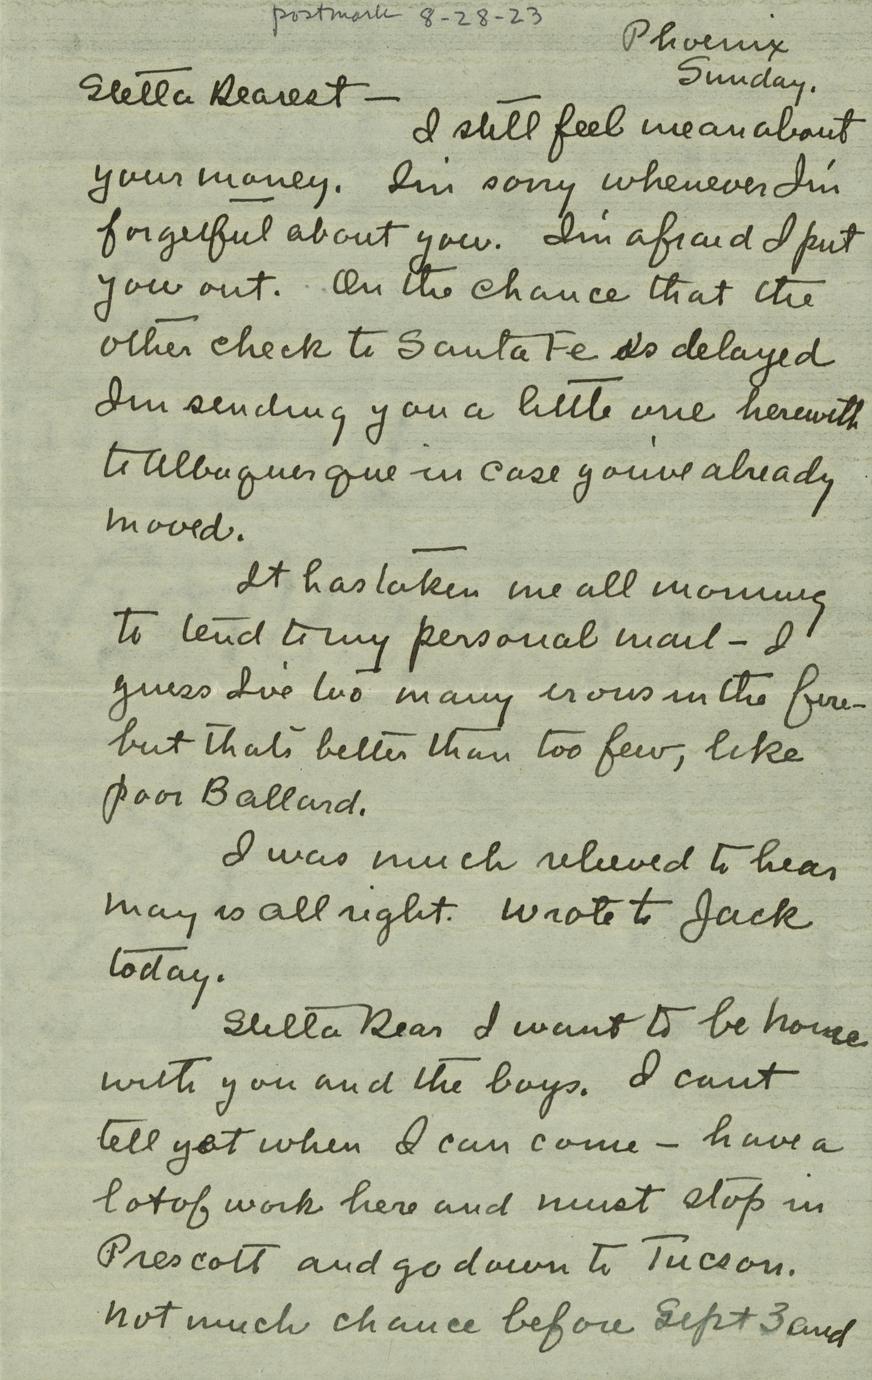 postmark 8-28-23
Phoenix
Sunday.
Estella Dearest —
I still feel mean about
your money. I'm sorry whenever I'm
forgetful about you. I'm afraid I put
you out. On the chance that the
other check to Santa Fe is delayed
I'm sending you a little one herewith
to Albuquerque in case you've already
moved.
It has taken me all morning
to tend to my personal mail — I
guess I've too many irons in the fire —
but that's better than too few, like
poor Ballard.
I was much relieved to hear
May is all right. Wrote to Jack
today.
Estella Dear I want to be home
with you and the boys. I cant
tell yet when I can come — have a
lot of work here and must stop in
Prescott and go down to Tucson.
Not much chance before Sept 3 and